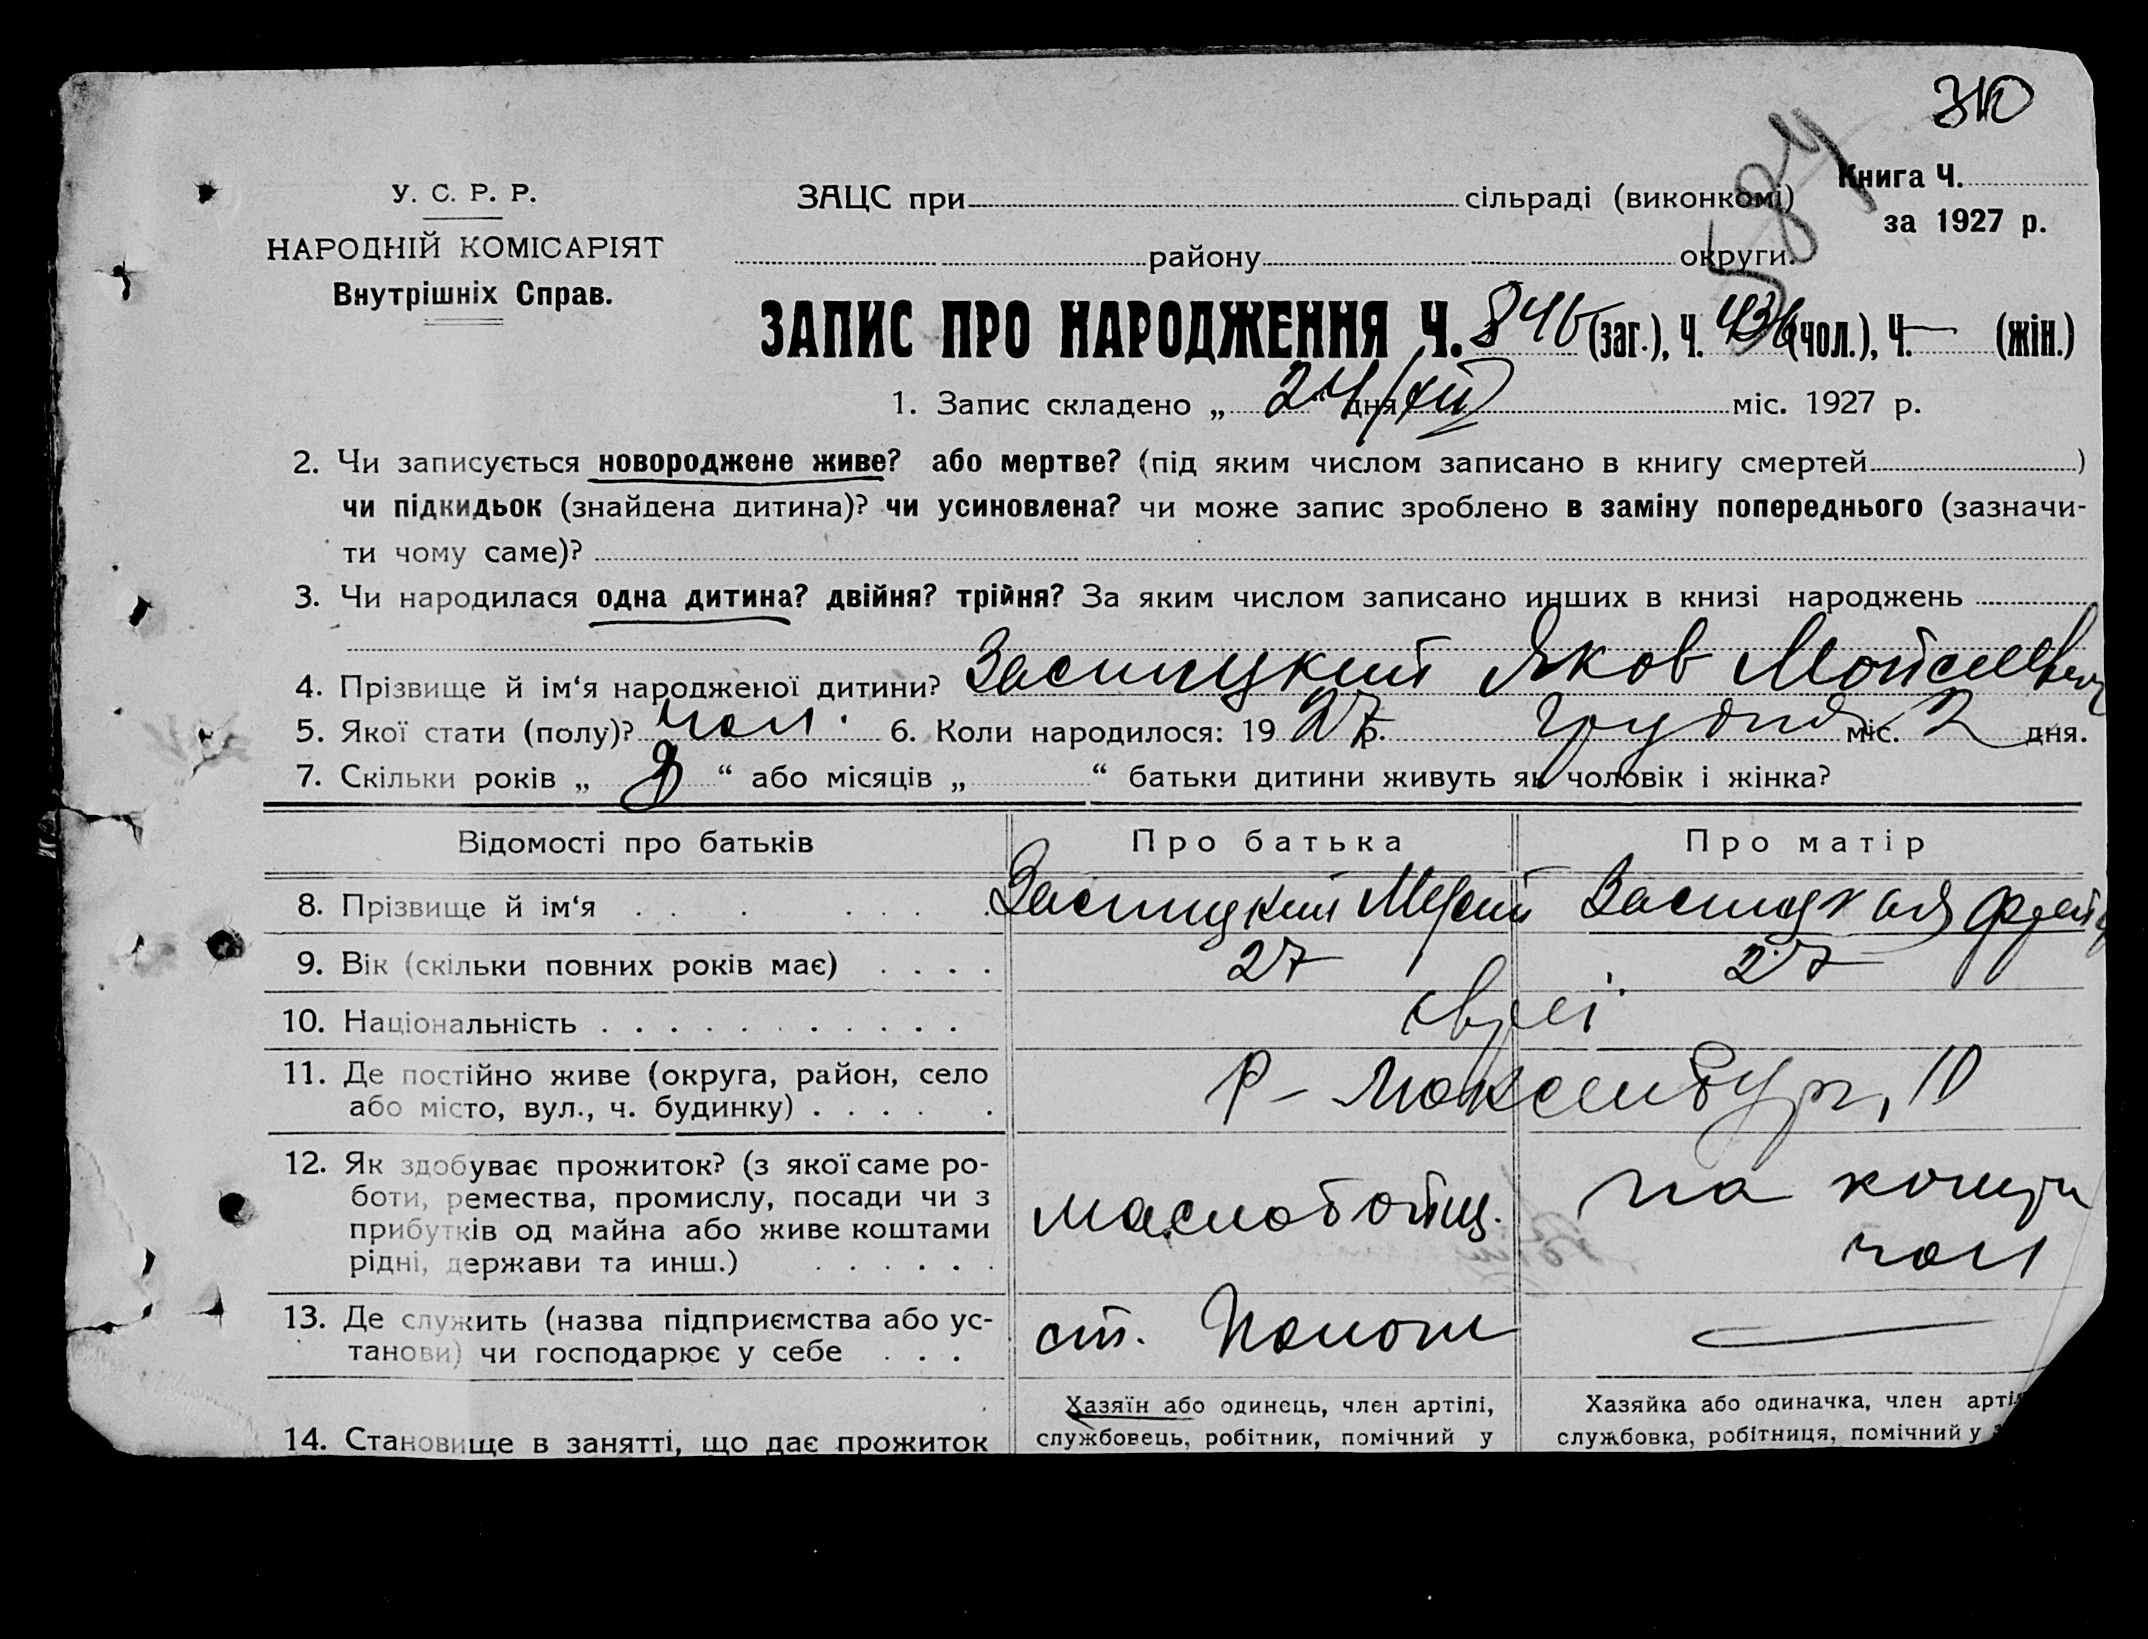 310
У. С. Р. Р.
НАРОДНІЙ КОМІСАРІЯТ
Внутрішніх Справ.
ЗАЦС при сільраді (виконкомі)
району округи.
Книга Ч.
за 1927 р.
ЗАПИС ПРО НАРОДЖЕННЯ Ч. 846 (заг.), Ч. 436 (чол.), Ч. — (жін.)
1. Запис складено „ 24/XII “ дня міс. 1927 р.
2. Чи записується новороджене живе? або мертве? (під яким числом записано в книгу смертей )
чи підкидьок (знайдена дитина)? чи усиновлена? чи може запис зроблено в заміну попереднього (зазначи-
ти чому саме)?
3. Чи народилася одна дитина? двійня? трійня? За яким числом записано инших в книзі народжень
4. Прізвище й ім‘я народженої дитини? Заслицкий Яков
5. Якої стати (полу)? чол. 6. Коли народилося: 19 27 р. грудня міс. 2 дня.
7. Скільки років „ “ або місяців „ “ батьки дитини живуть як чоловік і жінка?
Відомості про батьків Про батька Про матір
8. Прізвище й ім‘я . . . . . . . Заслицкий
9. Вік (скільки повних років має) . . . . 27 27
10. Національність . . . . . . . . . . . євреї
11. Де постійно живе (округа, район, село
або місто, вул., ч. будинку) . . . . . .
12. Як здобуває прожиток? (з якої саме ро-
боти, ремества, промислу, посади чи з
прибутків од майна або живе коштами
рідні, держави та инш.) . . . . . .
маслобойщ.
на кошти
чол
13. Де служить (назва підприємства або ус-
танови) чи господарює у себе . . .
ст. Полог —
14. Становище в занятті, що дає прожиток
Хазяїн або одинець, член артілі,
службовець, робітник, помічний у
Хазяйка або одиначка, член
службовка, робітниця, помічний у